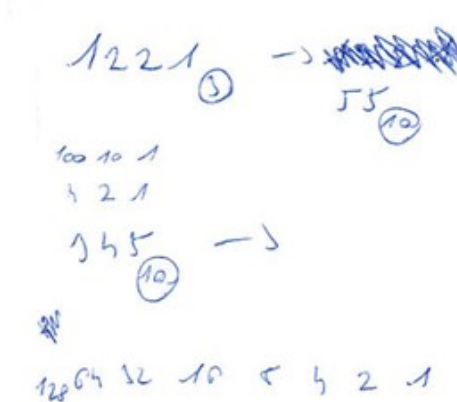 1221 3 →
55 10
100 10 1
4 2 1
345 10 →
128 64 32 16 8 4 2 1